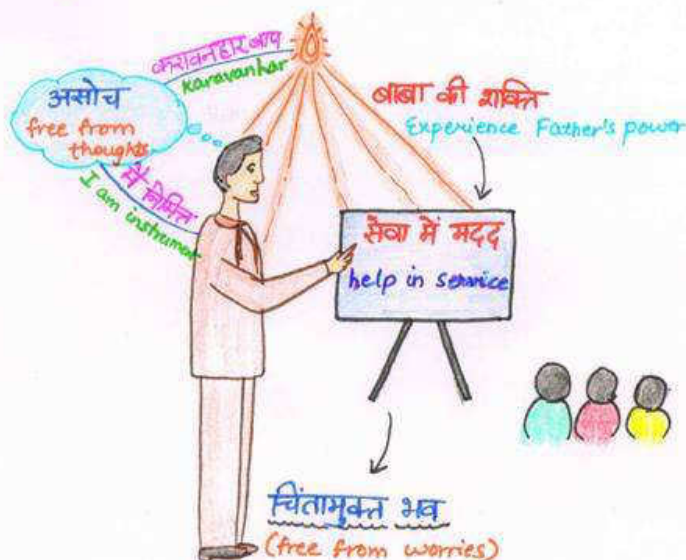 करावनहार बाप
Karavanhar
असोच
free from
thoughts
मैं निमित्त
I am instrument
बाबा की शक्ति
Experience Father's power
सेवा में मदद
help in service
चिंतामुक्त भव
(free from worries)